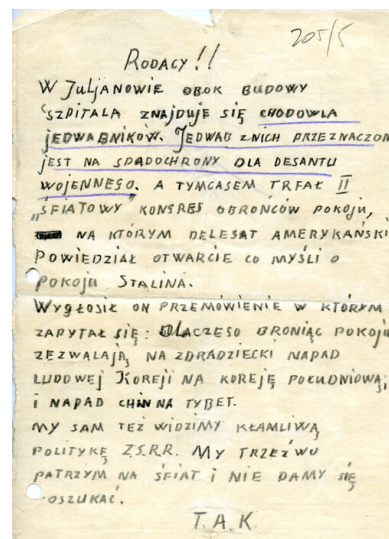 205/5
RODACY!!
W JULJANOWIE OBOK BUDOWY
SZPITALA ZNAJDUJE SIĘ CHODOWLA
JEDWABNIKÓW. JEDWAB Z NICH PRZEZNACZON
JEST NA SPADOCHRONY DLA DESANTU
WOJENNEGO. A TYMCASEM TRFAŁ II
„ŚFIATOWY” KONGRES OBROŃCÓW POKOJU,
NA KTÓRYM DELEGAT AMERYKAŃSKI
POWIEDZIAŁ OTWARCIE CO MYŚLI O
POKOJU STALINA.
WYGŁOSIŁ ON PRZEMÓWIENIE W KTÓRYM
ZAPYTAŁ SIĘ: DLACZEGO BRONIĄC POKOJU
ZEZWALAJĄ NA ZDRADZIECKI NAPAD
LUDOWEJ KOREJI NA KOREJĘ POŁUDNIOWĄ,
I NAPAD CHIN NA TYBET.
MY SAM TEŻ WIDZIMY KŁAMLIWĄ
POLITYKĘ Z.S.R.R. MY TRZEŹWO
PATRZYM NA ŚFIAT I NIE DAMY SIĘ
OSZUKAĆ.
T.A.K.